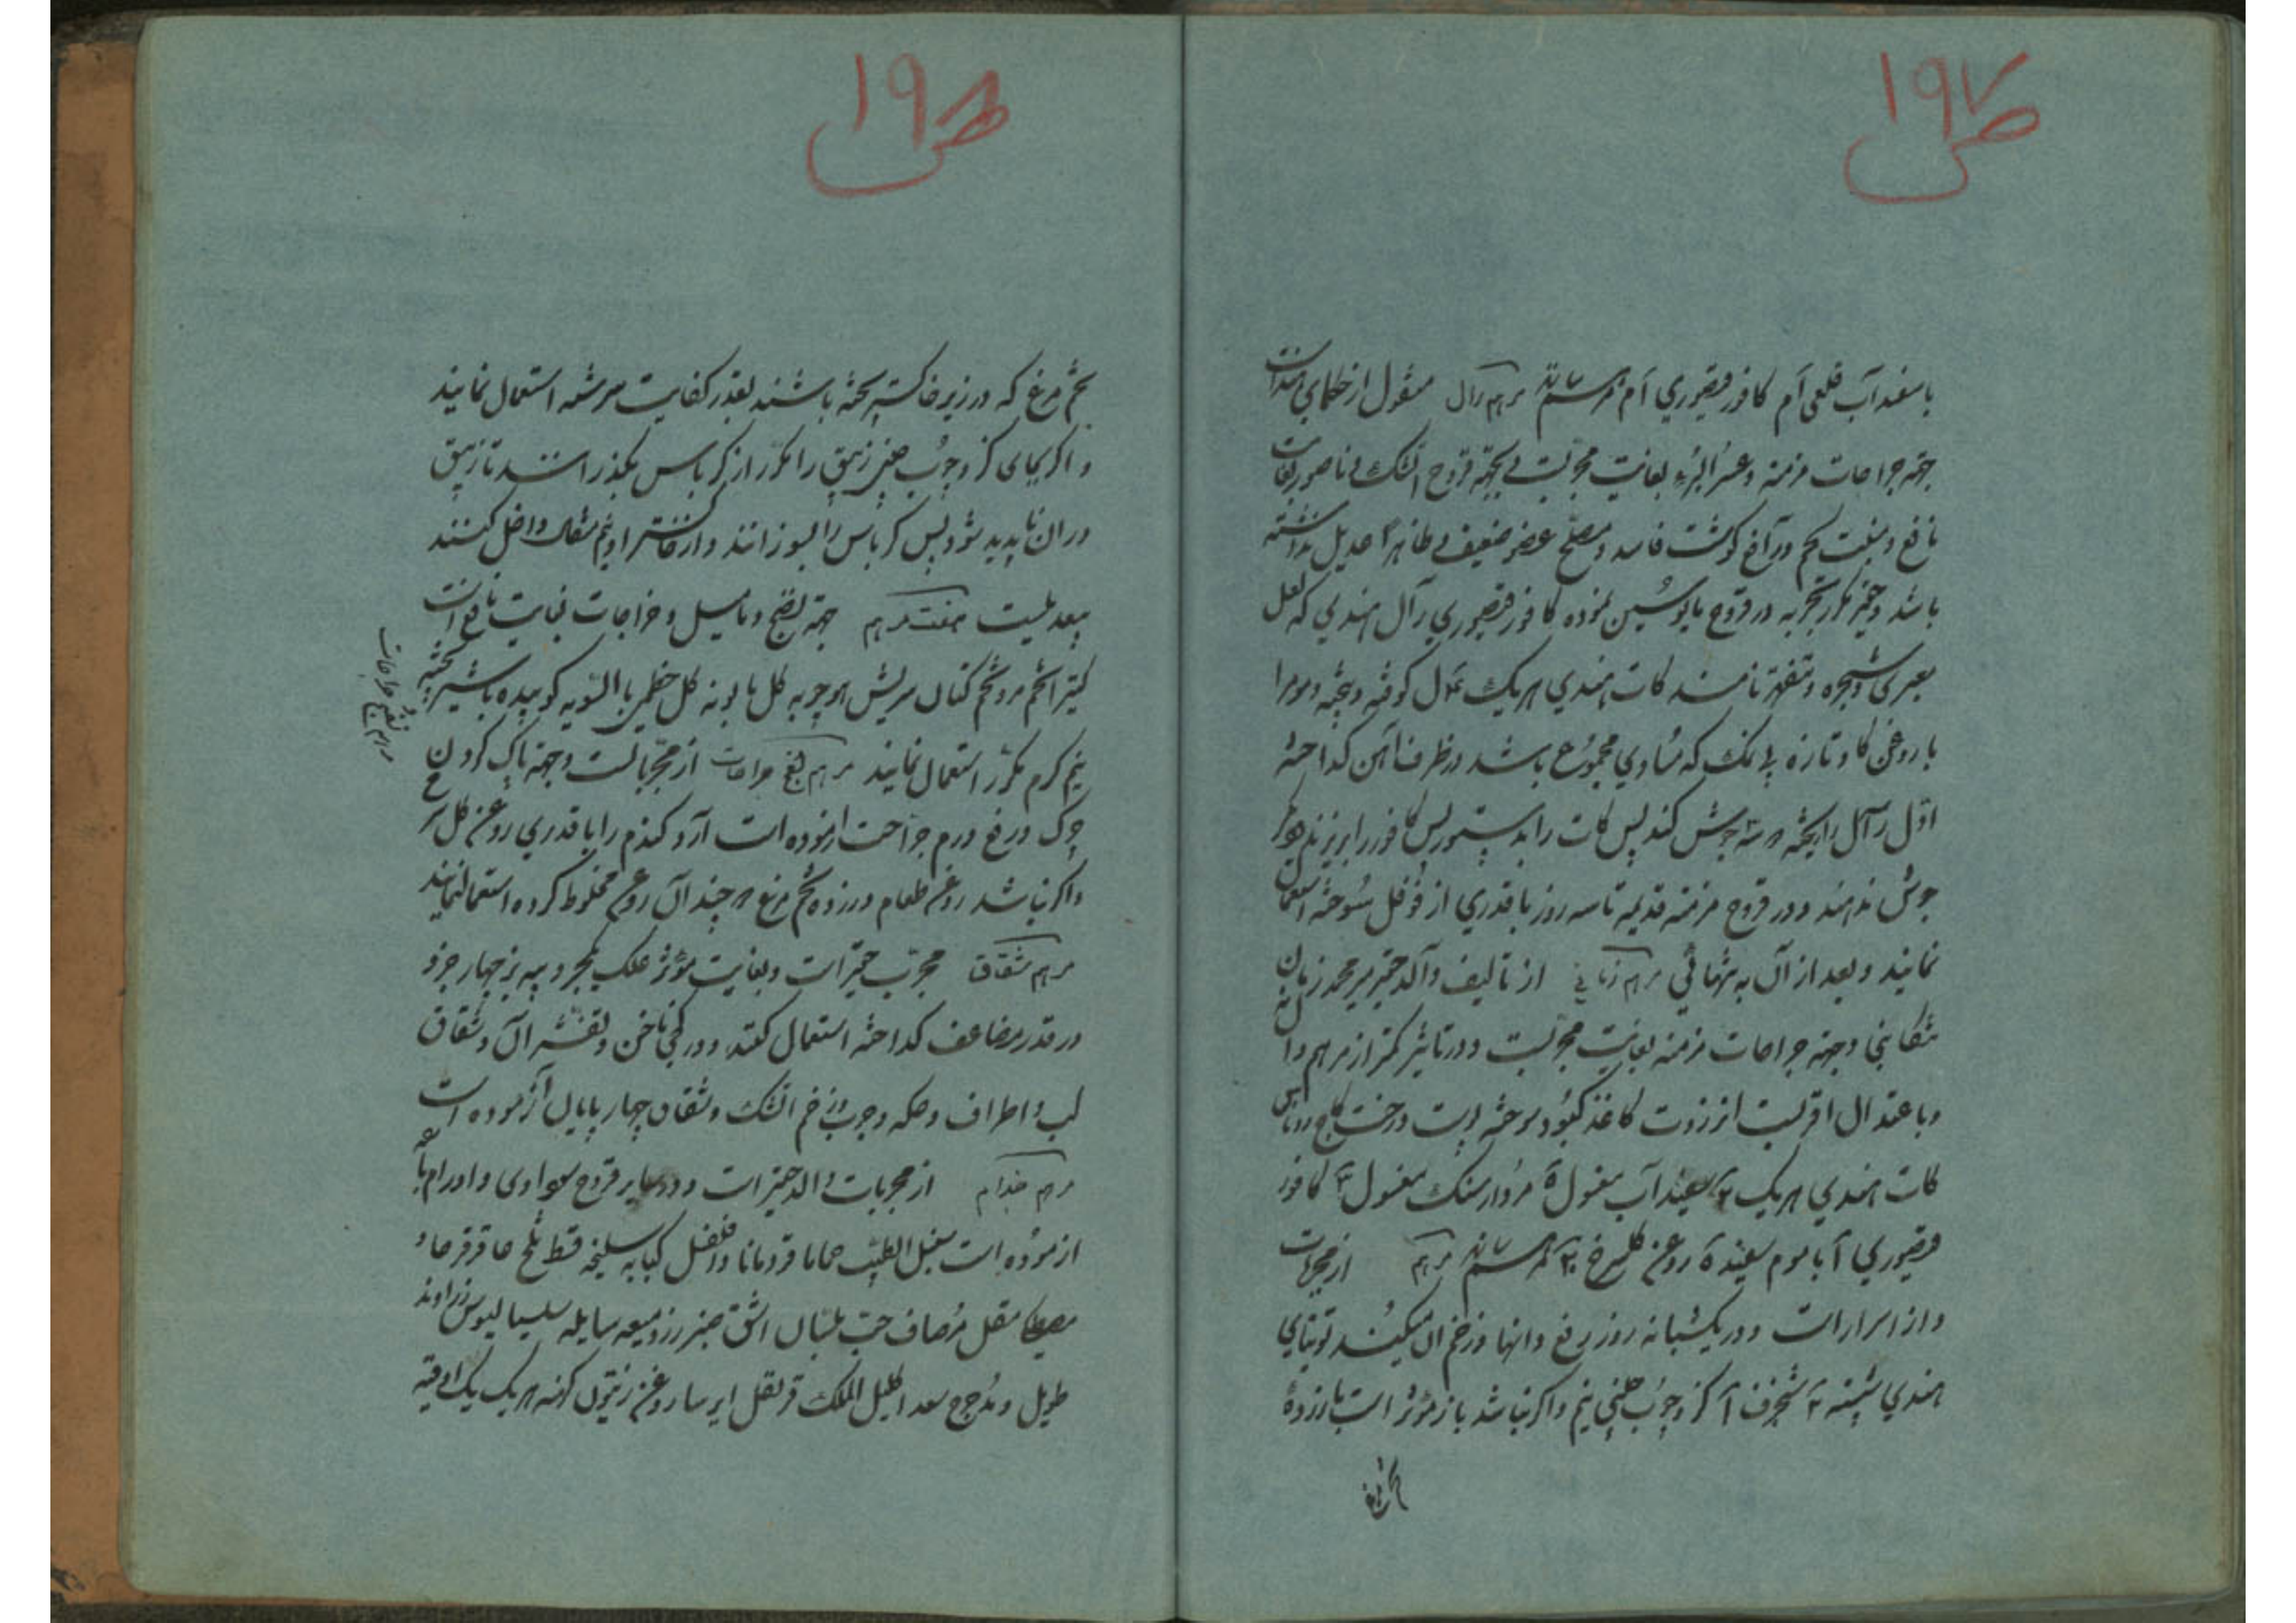 ص ۱۹۷
باسفیداب قلعی آم کافور قیصوری آم مرهم سازند مرهم رال منقول از حکمای هند است
جهة جراحات مزمنة و عسر البرء بغایت مجربست بجهة قروح اتشک و ناصور بغایت
نافع و منبت لحم و رافع کوشت فاسد و مصلح عضو ضعیف و ظاهرا عدیل نداشته
باشد و حقیر مکرر تجربه در قروح مایوسین نموده کافور قیصوری رآل هندی که لعل
معبری و شجره و تنقهر نامند کات هندی هریک مثال کوفته و بیخته و موم را
با روغن کاو تازه بی نمک که مساوی مجموع باشد در ظرف آهن کداخته
اول رآل را بیخته سه جوش کند پس کات را بدستور پس کافور را بریزند و
جوش ندهند و در قروح مزمنه قدیمه تا سه روز با قدری از فوفل سوخته استعمال
نمایند و بعد از آن به تنهائی مرهم زمانی از تالیف والد حقیر میر محمد زمان
تنکابنی وجهة جراحات مزمنه بغایت مجربست و در تاثیر کمتر از مرهم رآل نه
و باعتدال اقربست انزروت کاغذ کبود سوخته پوست درخت کاج روناس
کات هندی هریک ۲ سفیداب مغسول ۵ مردارسنک مغسول ۲ کافور
قیصوری آ با موم سفید ۵ روغن کلسرخ ۲۰ مرهم سازند مرهم از مجربات
و از اسرار است و در یکشبانه روز رفع وانها و زخم ان میکند توتیای
هندی شسته ۲ شنجرف آ کز و چوب چینی نیم و اکر نباشد باز مؤثر است بازرده
تخم مرغ
ص ۱۹۸
تخم مرغ که در زیر خاکستر پخته باشند بقدر کفایت سرشته استعمال نمایند
و اکر بجای کز و چوب چینی زیبق را مکرر از کرباس بگذرانند تا زیبق
در ان ناپدید شود پس کرباس را بسوزانند و از خاکستر او نیم مثقال داخل کنند
بیعدیلست صفت مرهم جهة نضج دمامیل و خراجات بغایت نافع است
کتیرا تخم مرو تخم کتان سریش هوجوبه کل بابونه کل خطمی بالسویه کوبیده باشیر پخته
نیم کرم مکرر استعمال نمایند مرهم نضج جراحات از مجرباتست وجهة پاک کردن
چرک و رفع ورم جراحت ازموده است آرد کندم را با قدری روغن کل سرخ
و اکر نباشد روغن طعام و زرده تخم مرغ هر چند آن روغن مخلوط کرده استعمال نمایند
مرهم شقاق مجرب حقیر است و بغایت مؤثر علک یکجزو پیه بز چهار جزو
در قدر مضاعف کداخته استعمال کنند و در کجی ناخن و تقشر آن و شقاق
لب و اطراف و حکه و جرب و زخم اتشک و شقاق چهارپایان آزموده است
مرهم جذام از مجربات والد حقیر است و در سایر قروح سوداوی و اورام
ازموده است سنبل الطیب حماما قردمانا دارفلفل کبابه سلیخه قسط تلخ عاقرقرحا و
مصطکی مقل مرصاف حب بلسان اشق صبر زرد میعه سایله سیسالیوس زراوند
طویل و مدحرج سعد اکلیل الملک قرنفل ایرسا روغن زیتون کهنه هریک یک اوقیه
مرهم نضج جراحات